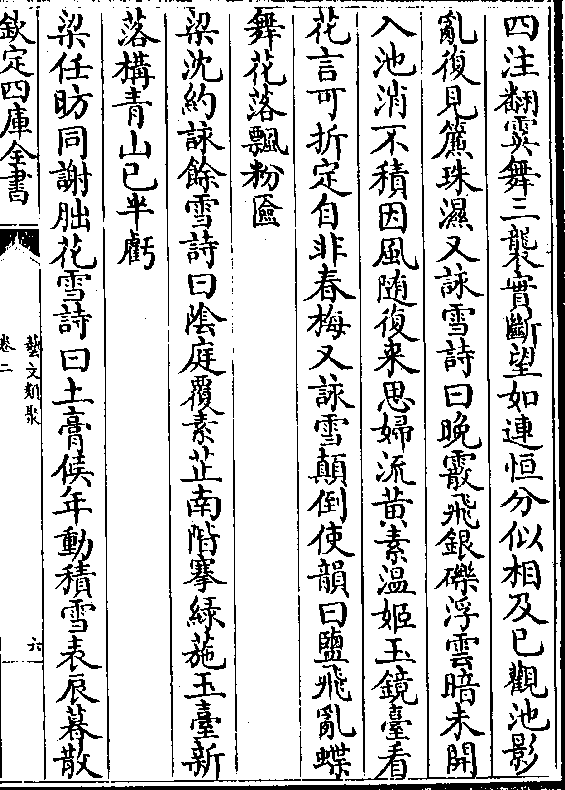 四注翻霙舞三襲實斷望如連恒分似相及已觀池影
亂復見簾珠濕又詠雪詩曰晚霰飛銀礫浮雲暗未開
入池消不積因風随復来思婦流黄素温姬玉鏡臺看
花言可折定自非春梅又詠雪顛倒使韻曰鹽飛亂蝶
舞花落飄粉匳
梁沈約詠餘雪詩曰陰庭覆素芷南階搴緑葹玉臺新
落構青山已半虧
梁任昉同謝朏花雪詩曰土膏候年動積雪表辰暮散
欽定四庫全書
藝文類聚
卷二
六